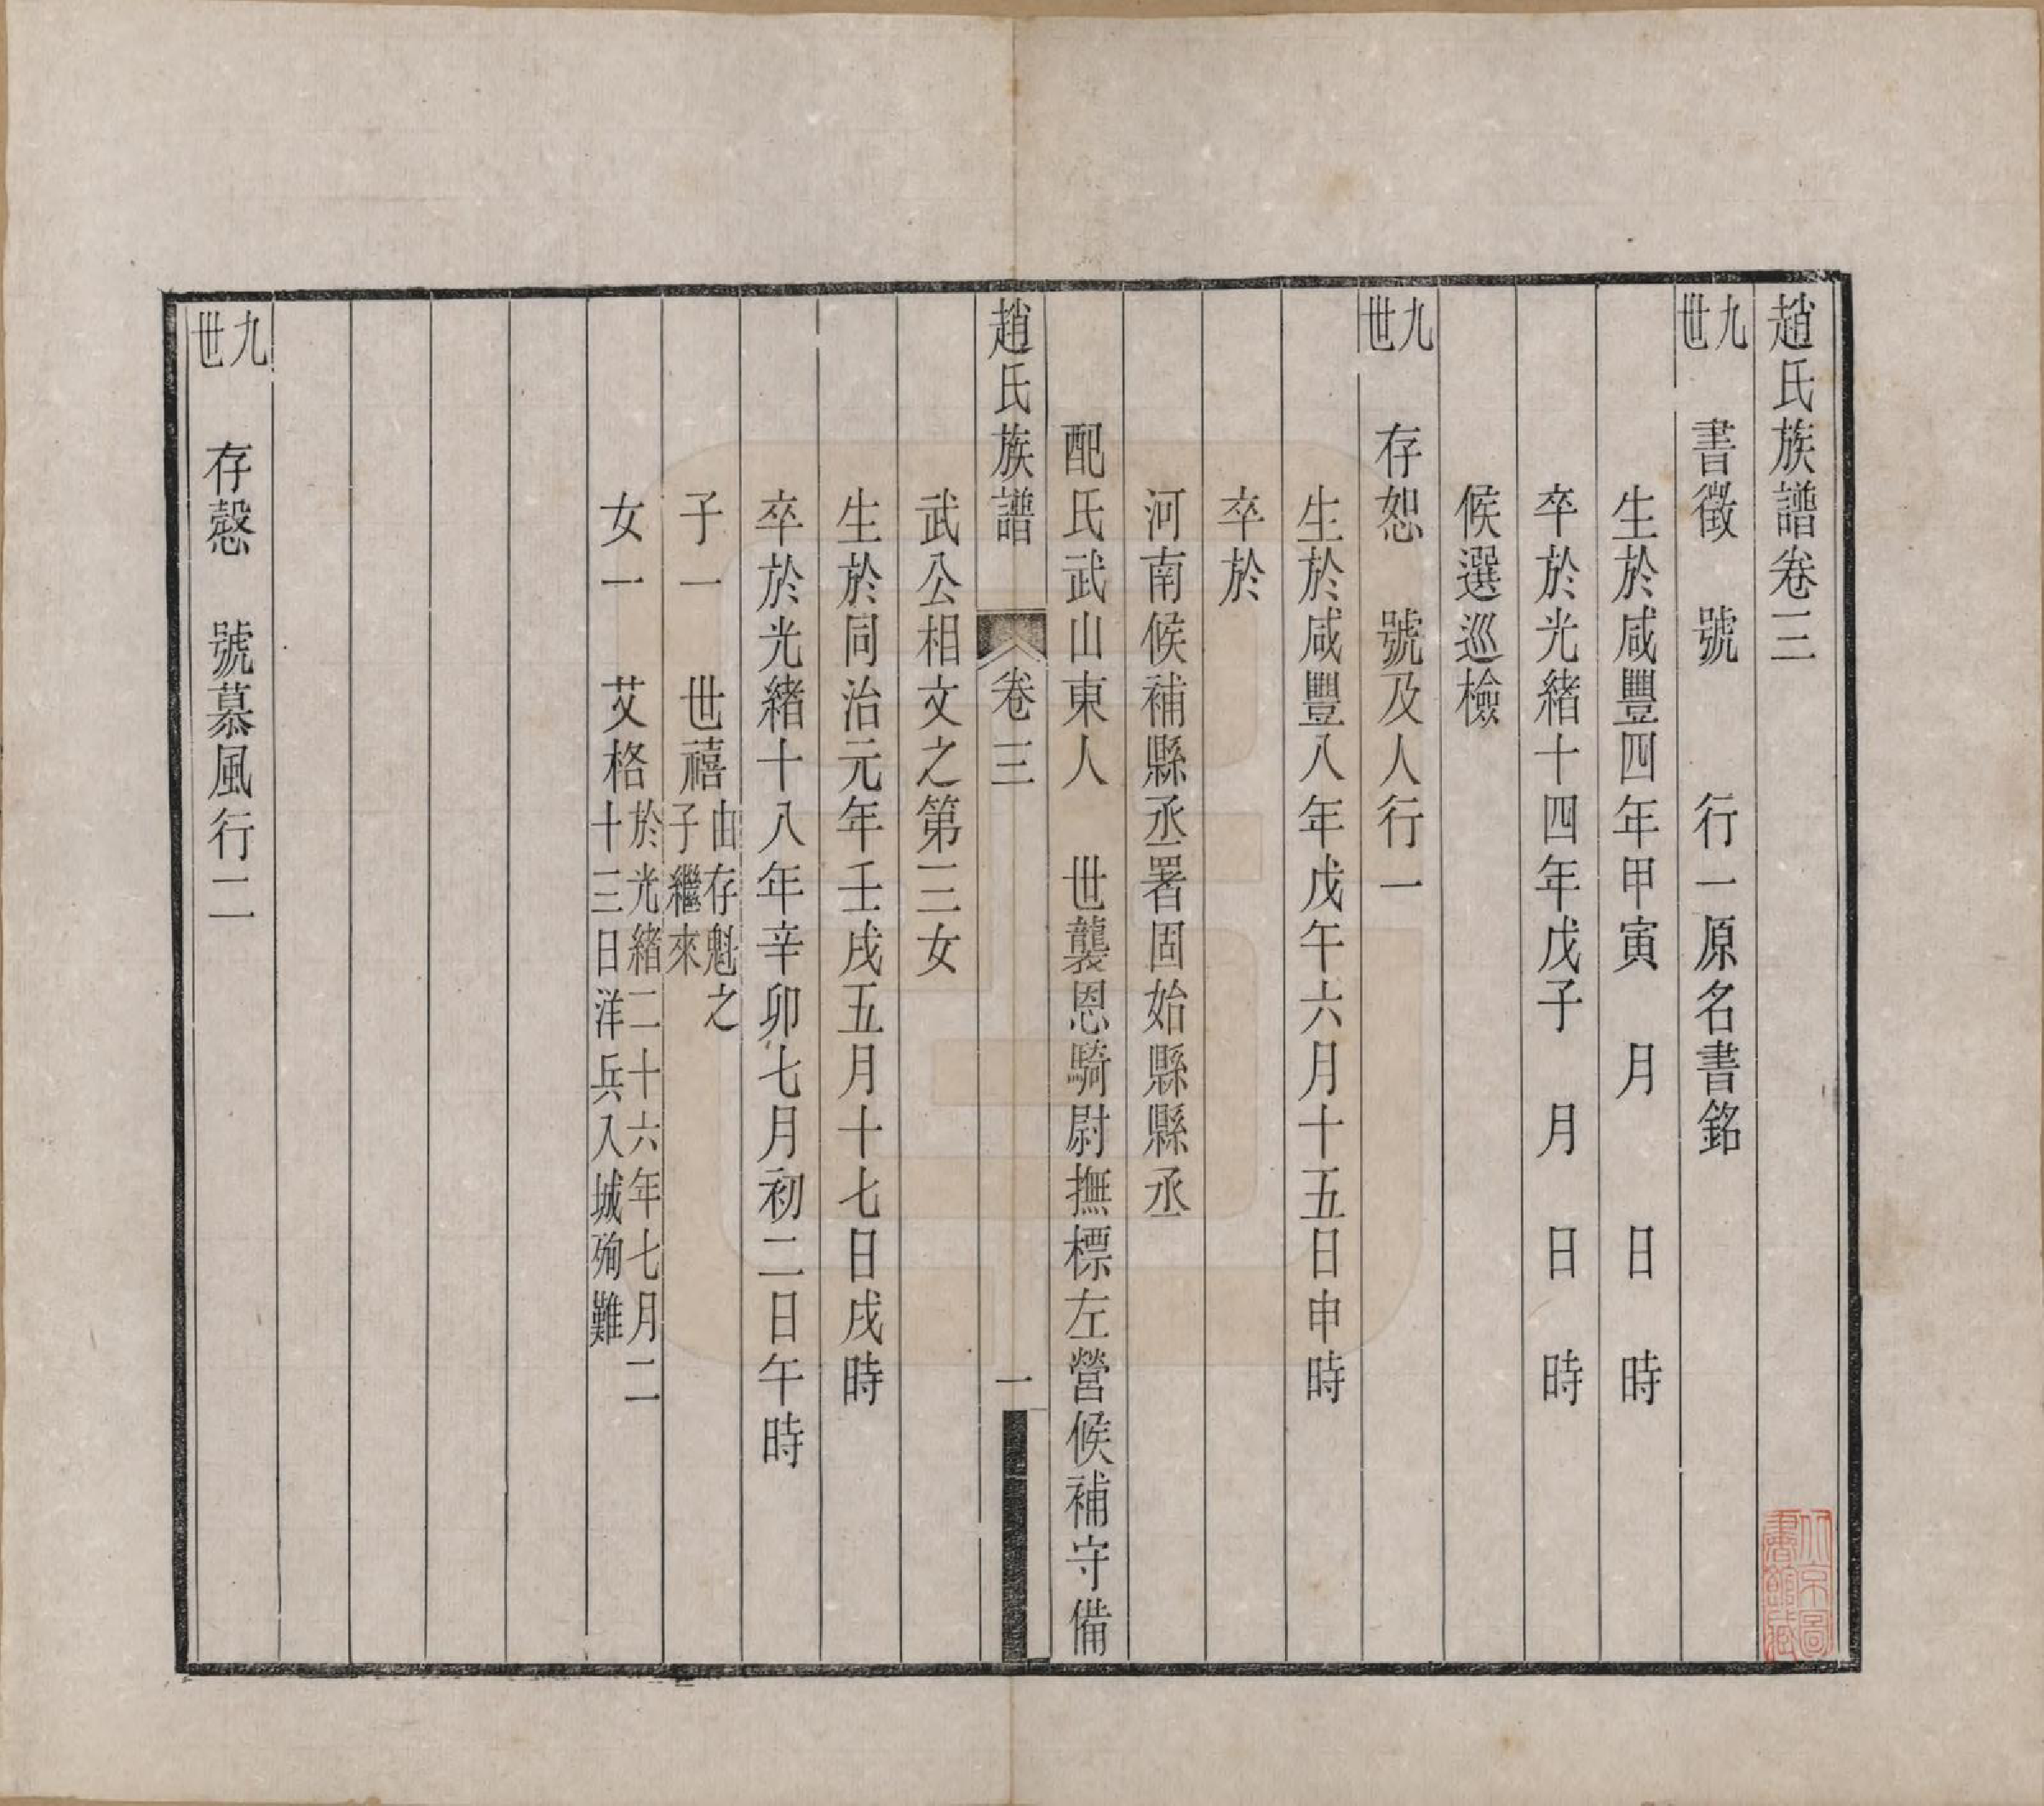 趙氏族譜卷三
九世　書徵　號　　行一原名書銘
生於咸豐四年甲寅　月　　日　時
卒於光緒十四年戊子　月　日　時
候選巡檢
九世　存恕　號及人行一
生於咸豐八年戊午六月十五日申時
卒於
河南候補縣丞署固始縣縣丞
配氏武山東人　世襲恩騎尉撫標左營候補守備
趙氏族譜　卷三　一
武公相文之第三女
生於同治元年壬戌五月十七日戌時
卒於光緒十八年辛卯七月初二日午時
子一　世禧由存魁之子繼來
女一　艾格於光緒二十六年七月二十三日洋兵入城殉難
九世　存愨　號慕風行二